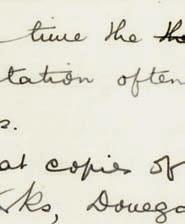 time the
tation often
s.
at copies of
rks, Donega